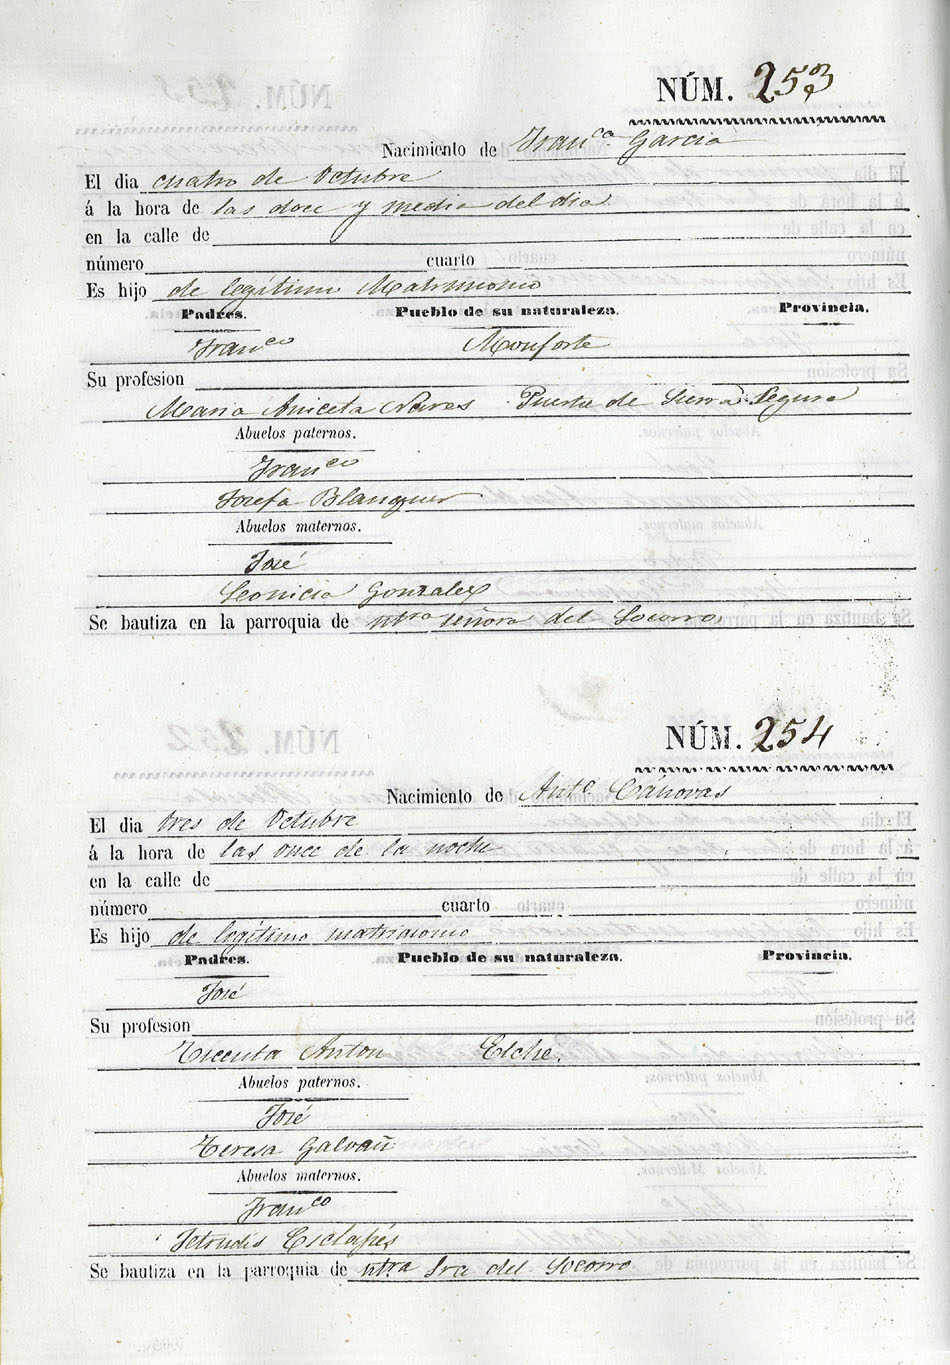 NÚM. 253
Nacimiento de Franca. Garcia
El dia cuatro de Octubre
á la hora de las doce y media del dia.
en la calle de
número cuarto
Es hijo de legítimo Matrimonio
Padres. Pueblo de su naturaleza. Provincia.
Franco Monforte
Su profesion
Maria Aniceta Nares Puerta de Sierra Segura
Abuelos paternos.
Franco
Josefa Blanquer
Abuelos maternos.
José
Leonicia Gonzalez
Se bautiza en la parroquia de ntra señora del Socorro.
NÚM. 254
Nacimiento de Anto. Cánovas
El dia tres de Octubre
á la hora de las once de la noche
en la calle de
número cuarto
Es hijo de legítimo matrimonio
Padres. Pueblo de su naturaleza. Provincia.
José
Su profesion
Anton Elche.
Abuelos paternos.
José
Teresa Galvañ
Abuelos maternos.
Franco
Jetrudis Esclapés
Se bautiza en la parroquia de ntra Sra del Socorro